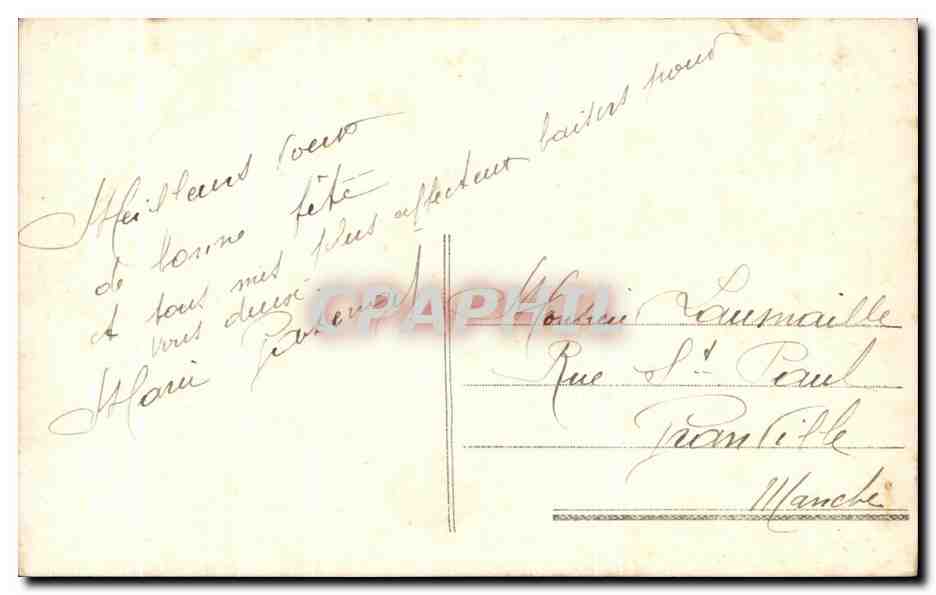 Meilleurs voeux
de bonne fête
et tous mes plus affectueux baisers pour
vous deux.
Marie
CPAPHIL
Monsieur Laumaille
Rue St Paul
Granville
Manche